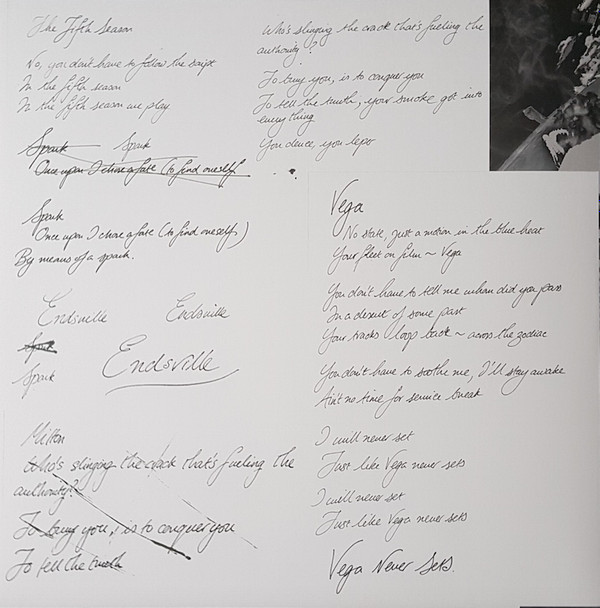 The Fifth Season
No, you don't have to follow the script
In the fifth season
In the fifth season we play
Spark Spark
Once upon I chose a fate (to find oneself
Spark
Once upon I chose a fate (to find oneself)
By means of a spark.
Endsville Endsville
Spark
Spark
Endsville
Milton
Who's slinging the crack that's fueling the
authority?
To buy you, is to conquer you
To tell the truth
Who's slinging the crack that's fueling the
authority?
To buy you, is to conquer you
To tell the truth, your smoke got into
everything
You dance, you
Vega
No state, just a motion in the blue heat
Your fleet on film ~ Vega
You don't have to tell me when did you pass
In a desert of some past
Your tracks loop back ~ across the zodiac
You don't have to soothe me, I'll stay awake
Ain't no time for service break
I will never set
Just like Vega never sets
I will never set
Just like Vega never sets
Vega Never Sets.